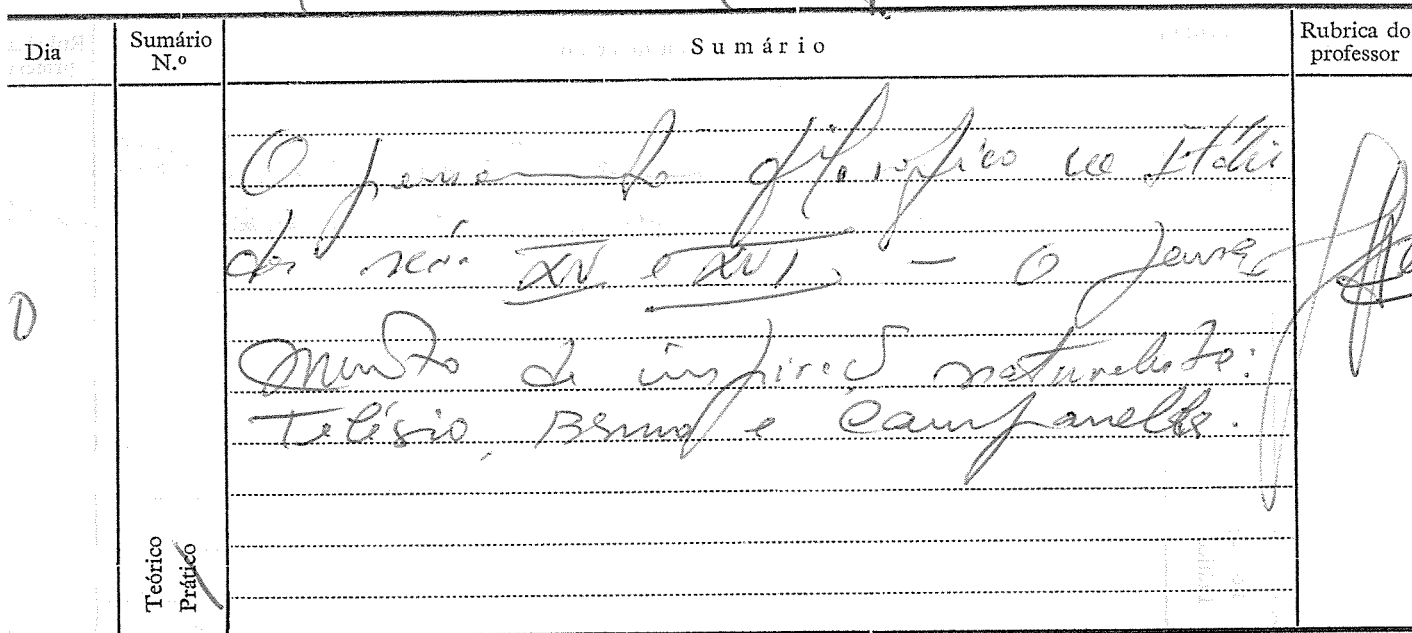 Dia
Sumário N.º
Sumário
Rubrica do professor
O pensamento filosófico na Itália
dos séc. XV e XVI. — O pensa-
mento de inspiração naturalista:
Telésio, Bruno e Campanella.
Teórico
Prático